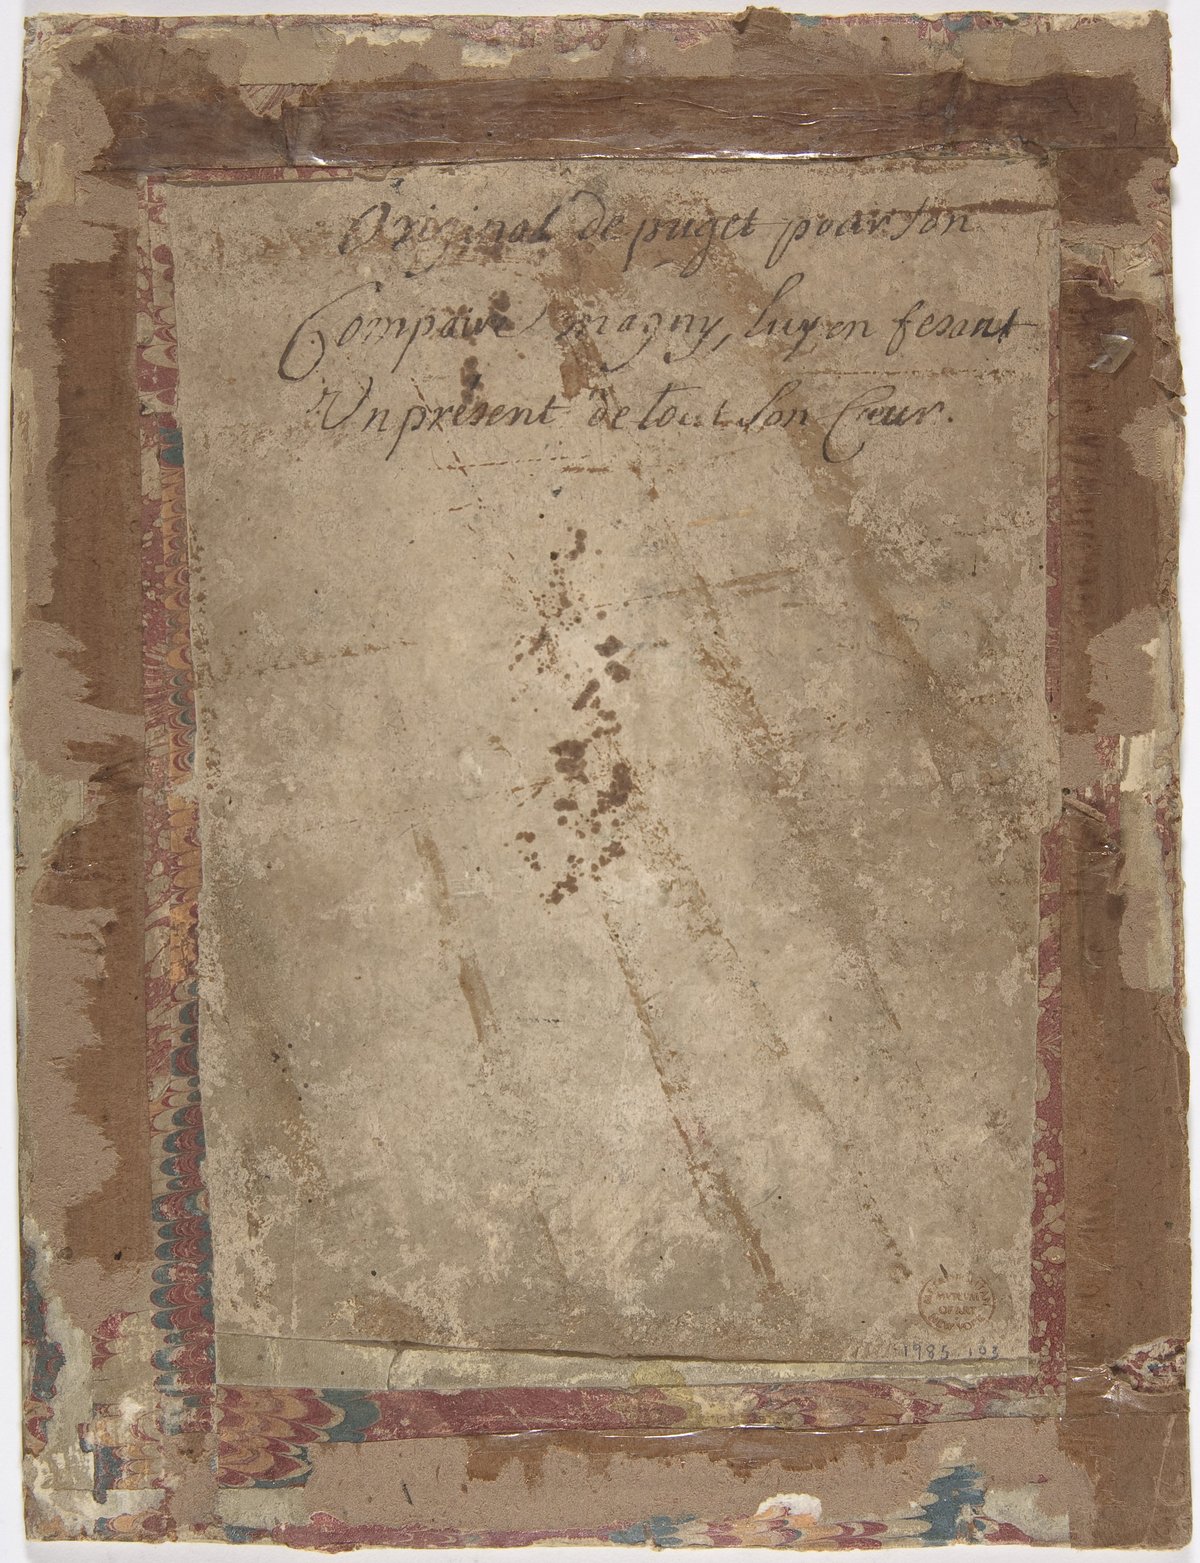 Original de puget pour son
Compaire magny, luy en fesant
Un present de tout son Cœur.
MUSEUM
OF ART
1985.103